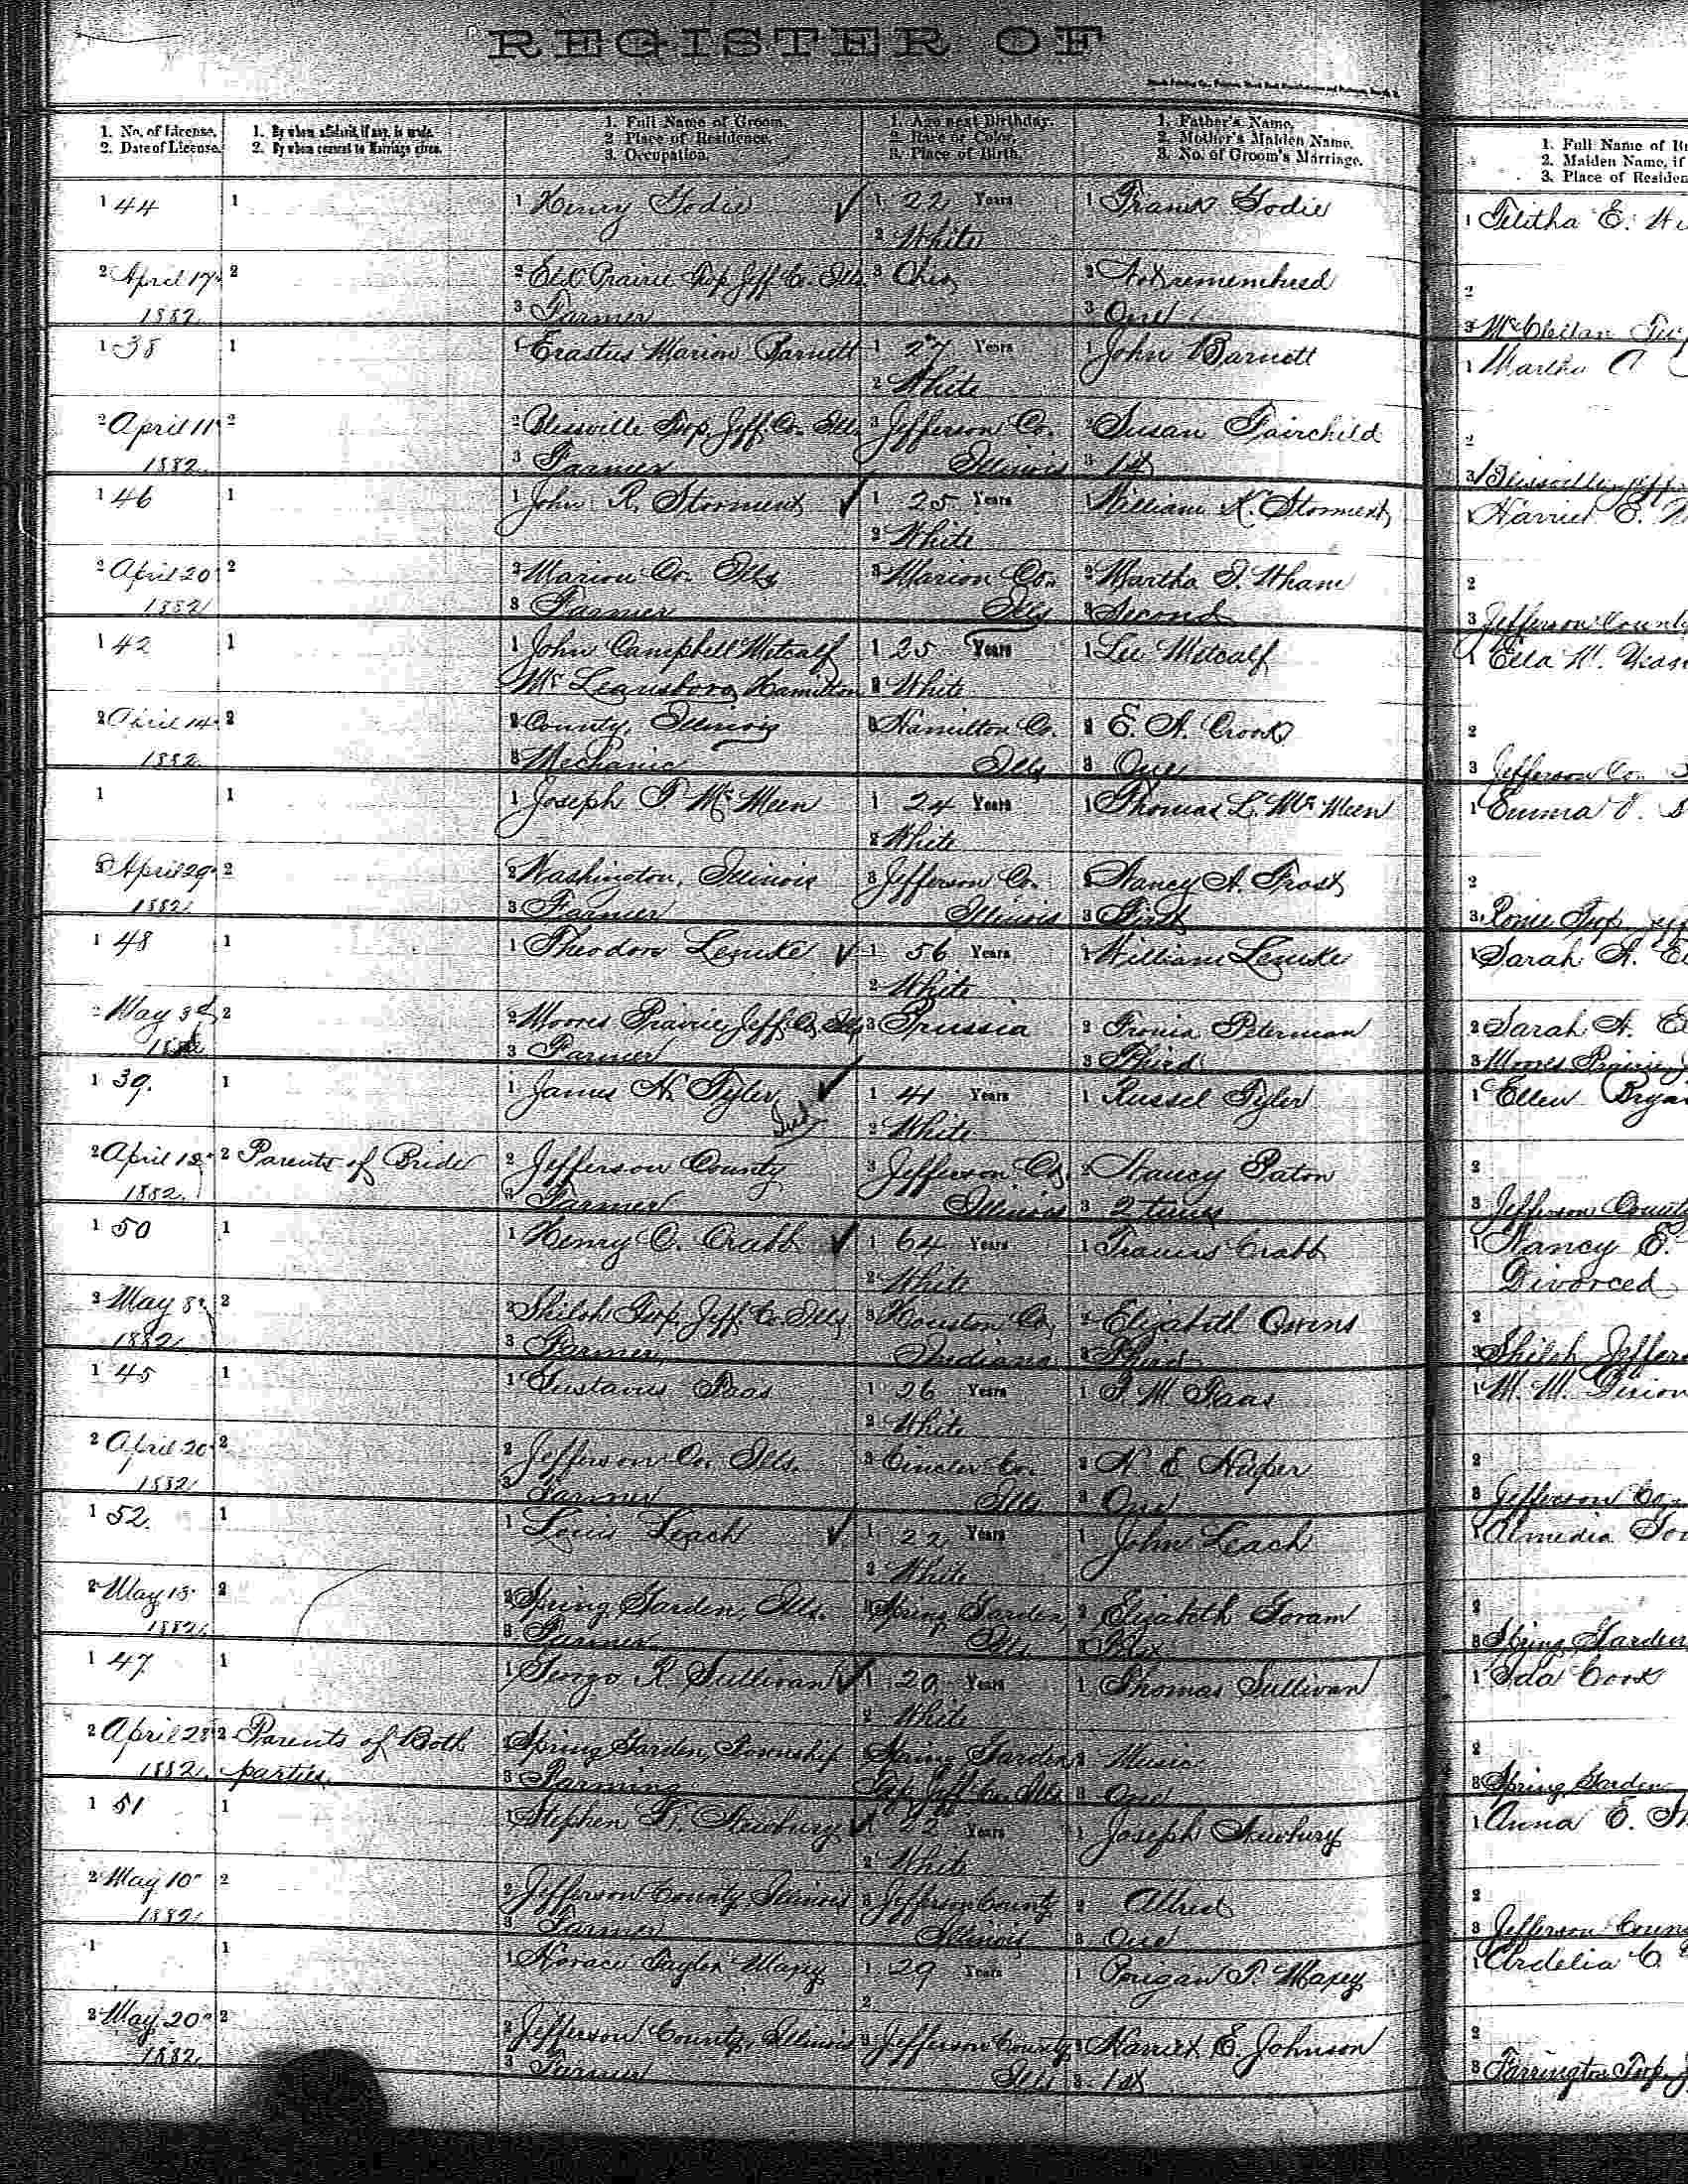 REGISTER OF
1. No. of License.
2. Date of License.
1. By whom affidavit, if any, is made.
2. By whom consent to Marriage given.
1. Full Name of Groom.
2 Place of Residence.
3. Occupation.
1. Age next Birthday.
2. Race or Color.
3. Place of Birth.
1. Father's Name.
2. Mother's Maiden Name.
3. No. of Groom's Marriage.
1. Full Name of
2. Maiden Name, if
3. Place of Residen
1 44 1 1 Henry Godie 1 22 Years 1 Frank Godie 1 Telitha E.
2 White
2 April 17 2 2 Elk Prairie Twp Jeff. Co. Ills. 3 Ohio 2 Not remembered 2
1882 3 Farmer 3 One 3 McClellan
1 38 1 1 Erastus Marion Barnett 1 27 Years 1 John Barnett 1 Martha A
2 White
2 April 11 2 2 Blissville Twp, Jeff. Co. Ills. 3 Jefferson Co. 2 Susan Fairchild 2
1882 3 Farmer Illinois 3 1st 3 Blissville
1 46 1 1 John R. Storment 1 25 Years 1 William K. Storment 1 Harriet E.
2 White
2 April 20 2 2 Marion Co. Ills 3 Marion Co. 2 Martha J. Wham 2
1882 3 Farmer Ills 3 Second 3 Jefferson County
1 42 1 1 John Campbell Metcalf 1 25 Years 1 Lee Metcalf 1 Ella
Mc Leansboro, Hamilton 2 White
2 April 14 2 2 County, Illinois 3 Hamilton Co. 2 E. A. Crook 2
1882 3 Mechanic Ills 3 One 3 Jefferson Co.
1 1 1 Joseph T McMeen 1 24 Years 1 Thomas L. McMeen 1 Emma
2 White
2 April 29 2 2 Washington, Illinois 3 Jefferson Co. 2 Nancy A. Frost 2
1882 3 Farmer Illinois 3 First 3 Rome Twp
1 48 1 1 Theodore Lemke 1 56 Years 1 William Lemke 1 Sarah A.
2 White
2 May 3d 2 2 Moores Prairie, Jeff. Co. Ills 3 Prussia 2 Peterman 2 Sarah A.
3 Farmer 3 Third 3 Moores Prairie
1 39. 1 1 James N. Tyler 1 41 Years 1 Russel Tyler 1 Ellen
2 White
2 April 12 2 Parents of Bride 2 Jefferson County 3 Jefferson Co. 2 Nancy Paton 2
1882 3 Farmer Illinois 3 2 times 3 Jefferson County
1 50 1 1 Henry C. Crabb 1 64 Years 1 Francis Crabb 1 Nancy E.
2 White Divorced
2 May 8 2 2 Shiloh Twp. Jeff. Co. Ills 3 Houston Co, 2 Elizabeth Owens 2
1882 3 Farmer Indiana 3 Third 3 Shiloh
1 45 1 1 Gustavus Paas 1 26 Years 1 Paas 1 M. M.
2 White
2 April 20 2 2 Jefferson Co. Ills. 3 2 2
1882 3 Farmer Ills 3 One 3 Jefferson Co.
1 52. 1 1 Louis Leach 1 22 Years 1 John Leach 1 Almedia
2 White
2 May 13 2 2 Spring Garden, Ills. 3 Spring Garden, 2 Elizabeth 2
1882 3 Farmer Ills 3 3 Spring Garden
1 47 1 1 George R. Sullivan 1 20 Years 1 Thomas Sullivan 1 Ida Cook
2 White
2 April 28 2 Parents of Both 2 Spring Garden, Township 3 Spring Garden 2 Music 2
1882 parties. 3 Farming Twp, Jeff. Co. Ills 3 One 3 Spring Garden
1 51 1 1 Stephen T. Newbury 1 Years 1 Joseph Newbury 1 Anna E.
2 White
2 May 10 2 2 Jefferson County Illinois 3 Jefferson County 2 Allred 2
1882 3 Farmer Illinois 3 One 3 Jefferson
1 1 1 Horace Taylor Maxey 1 29 Years 1 Maxey 1 Ardelia C
2
2 May 20 2 2 Jefferson County, Illinois 3 Jefferson County 2 Harriet E. Johnson 2
1882 3 Farmer Ills 3 1st 3 Farrington Twp